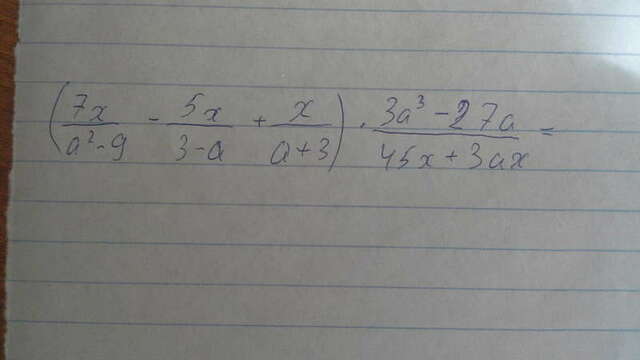 (7x/(a²-9) - 5x/(3-a) + x/(a+3)) · (3a³-27a)/(45x+3ax) =